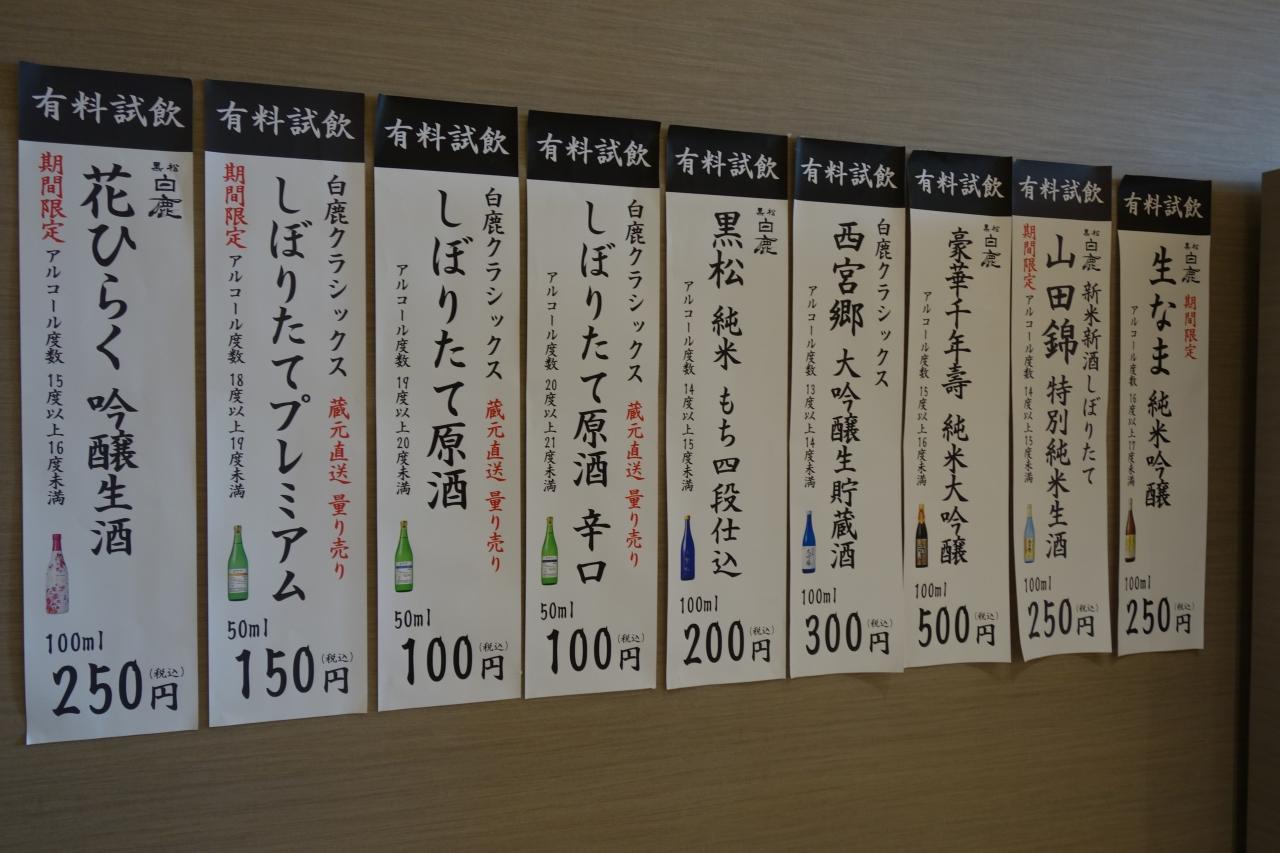 有料試飲
黒松
白鹿
花ひらく 吟醸生酒
期間限定 アルコール度数 15度以上16度未満
100ml
250円
(税込)
有料試飲
白鹿クラシックス 蔵元直送 量り売り
しぼりたてプレミアム
期間限定 アルコール度数 18度以上19度未満
50ml
150円
(税込)
有料試飲
白鹿クラシックス 蔵元直送 量り売り
しぼりたて原酒
アルコール度数 19度以上20度未満
50ml
100円
(税込)
有料試飲
白鹿クラシックス 蔵元直送 量り売り
しぼりたて原酒 辛口
アルコール度数 20度以上21度未満
50ml
100円
(税込)
有料試飲
黒松
白鹿
黒松 純米 もち四段仕込
アルコール度数 14度以上15度未満
100ml
200円
(税込)
有料試飲
白鹿クラシックス
西宮郷 大吟醸生貯蔵酒
アルコール度数 13度以上14度未満
100ml
300円
(税込)
有料試飲
黒松
白鹿
豪華千年壽 純米大吟醸
アルコール度数 15度以上16度未満
100ml
500円
(税込)
有料試飲
黒松
白鹿 新米新酒しぼりたて
山田錦 特別純米生酒
期間限定 アルコール度数 14度以上15度未満
100ml
250円
(税込)
有料試飲
黒松
白鹿 期間限定
生なま 純米吟醸
アルコール度数 16度以上17度未満
100ml
250円
(税込)